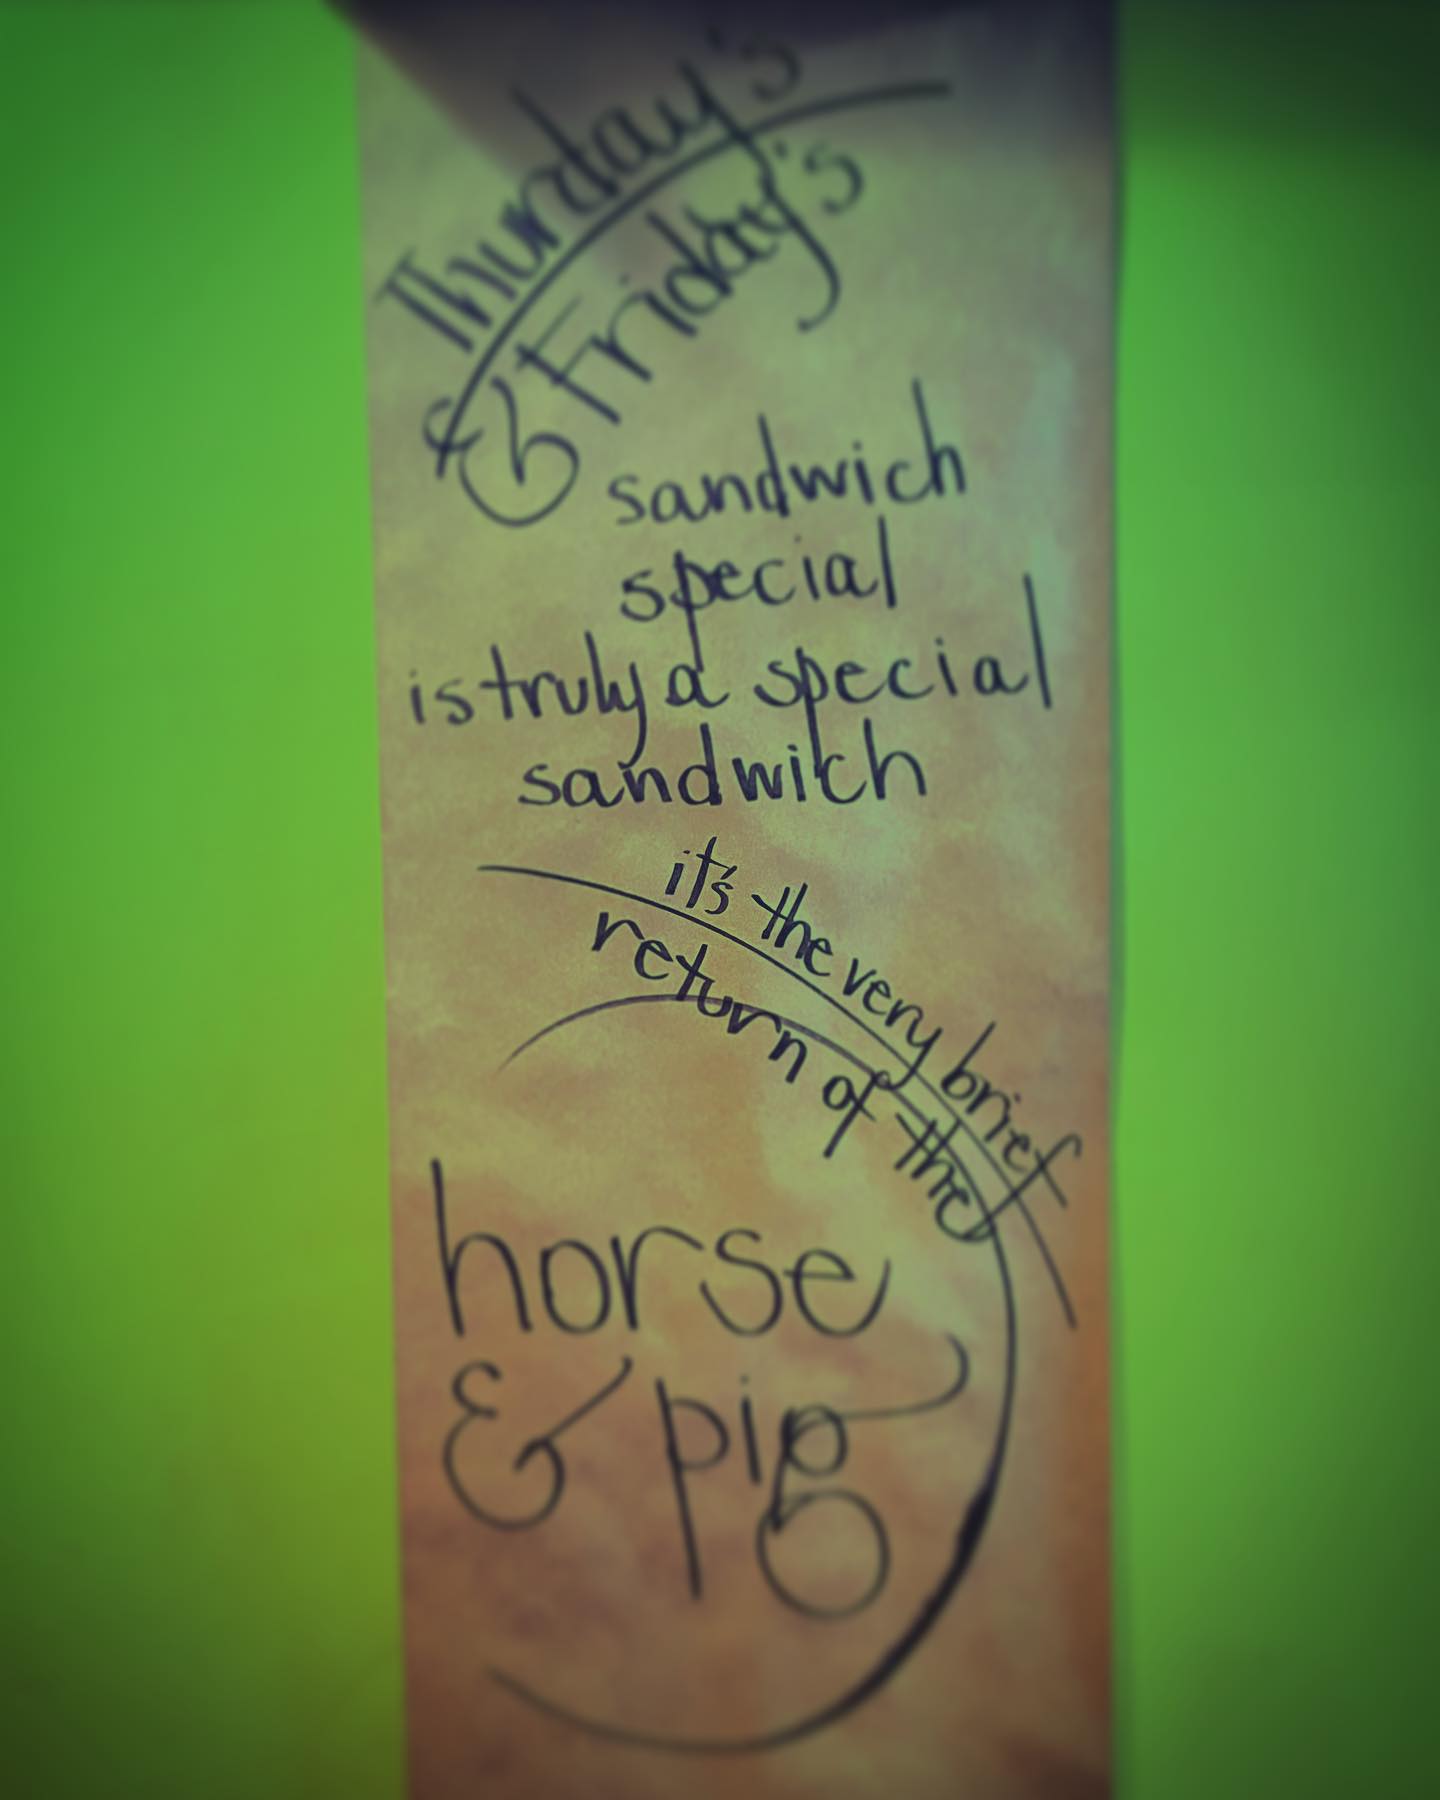 Thursday's
& Friday's
sandwich
special
is truly a special
sandwich
it's the very brief
return of the
horse
& pig